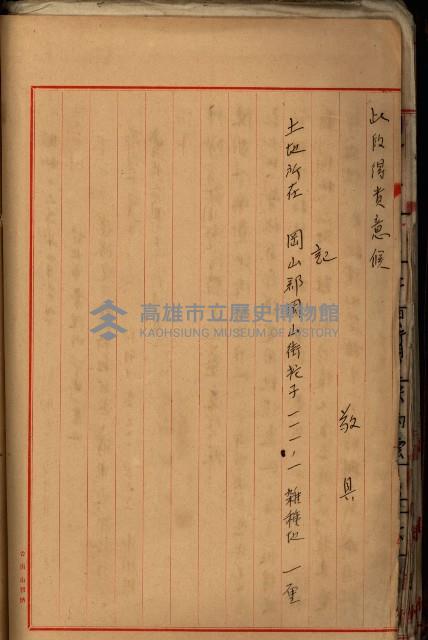 此段得貴意候
敬具
記
土地所在 岡山郡岡山街後子一一一、一 雜種地 一厘
高雄市立歷史博物館
KAOHSIUNG MUSEUM OF HISTORY